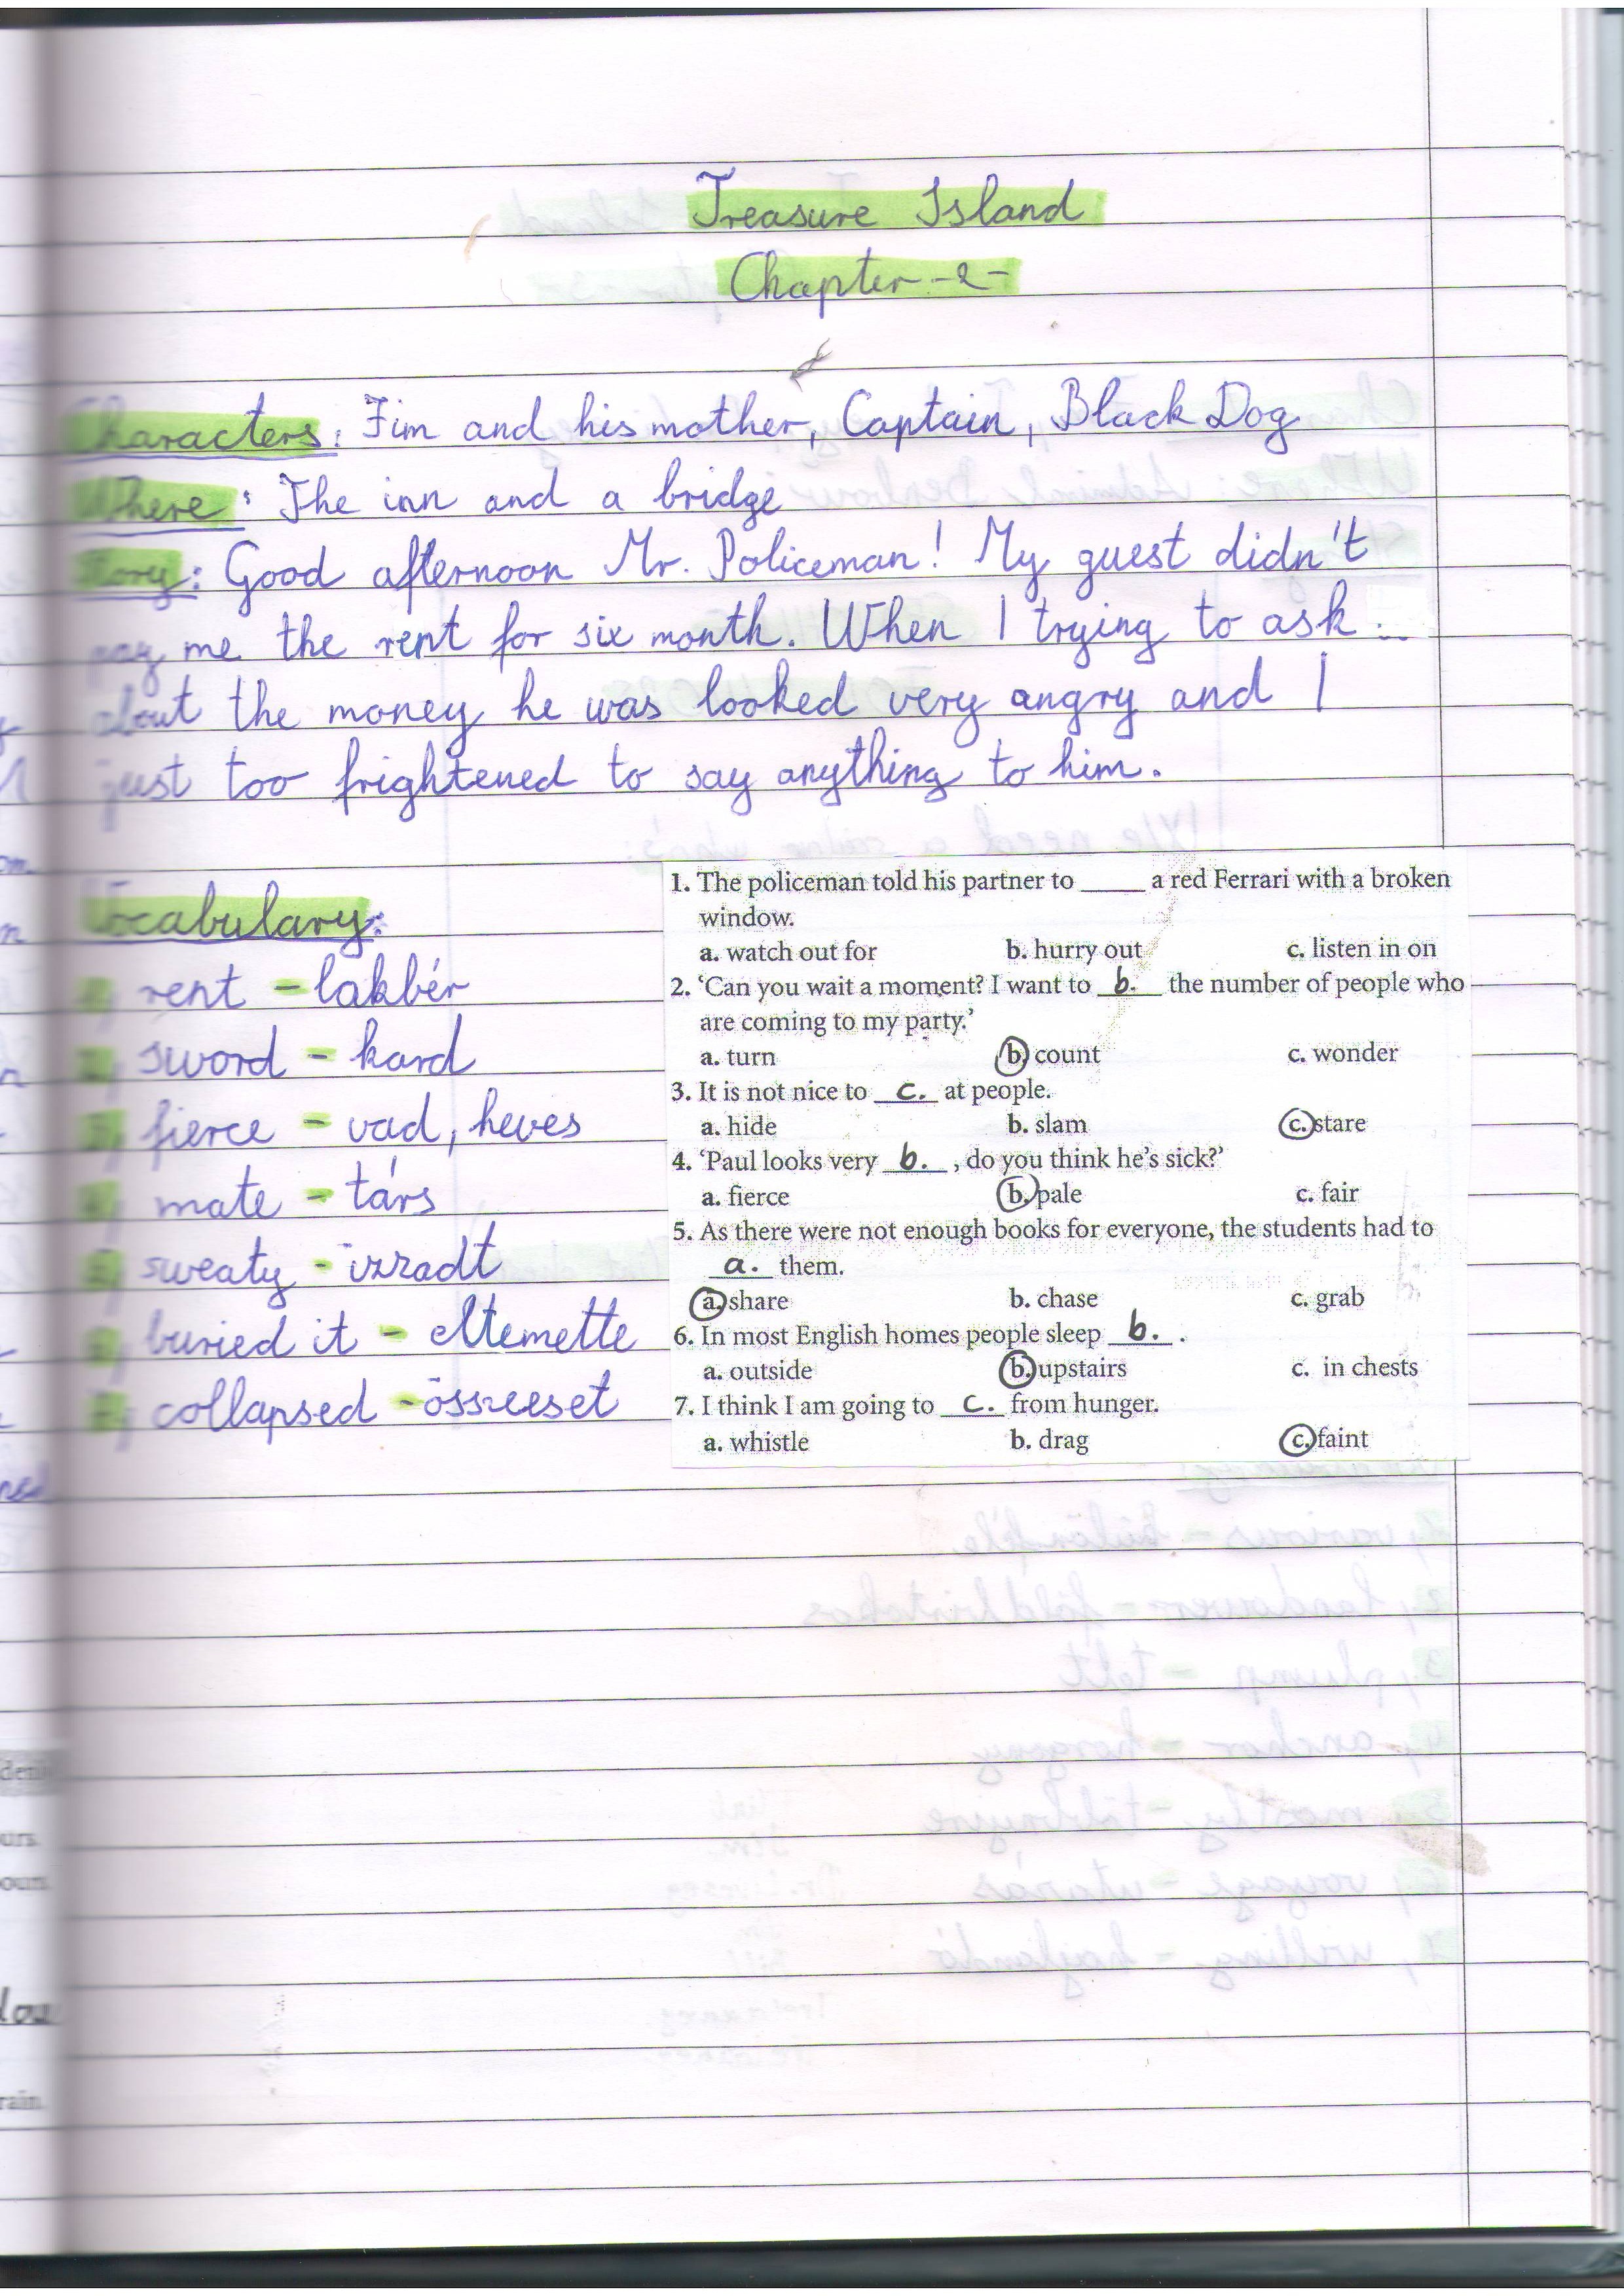 Treasure Island
Chapter -2-
Characters: Jim and his mother, Captain, Black Dog
Where: The inn and a bridge
Story: Good afternoon Mr. Policeman! My guest didn't
pay me the rent for six month. When I trying to ask
about the money he was looked very angry and I
just too frightened to say anything to him.
Vocabulary:
1, rent - lakbér
2, sword - kard
3, fierce - vad, heves
4, mate - társ
5, sweaty - izzadt
6, buried it - eltemette
7, collapsed - összeeset
1. The policeman told his partner to _____ a red Ferrari with a broken
window.
a. watch out for b. hurry out c. listen in on
2. 'Can you wait a moment? I want to b. the number of people who
are coming to my party.'
a. turn b. count c. wonder
3. It is not nice to c. at people.
a. hide b. slam c. stare
4. 'Paul looks very b. , do you think he's sick?'
a. fierce b. pale c. fair
5. As there were not enough books for everyone, the students had to
a. them.
a. share b. chase c. grab
6. In most English homes people sleep b. .
a. outside b. upstairs c. in chests
7. I think I am going to c. from hunger.
a. whistle b. drag c. faint